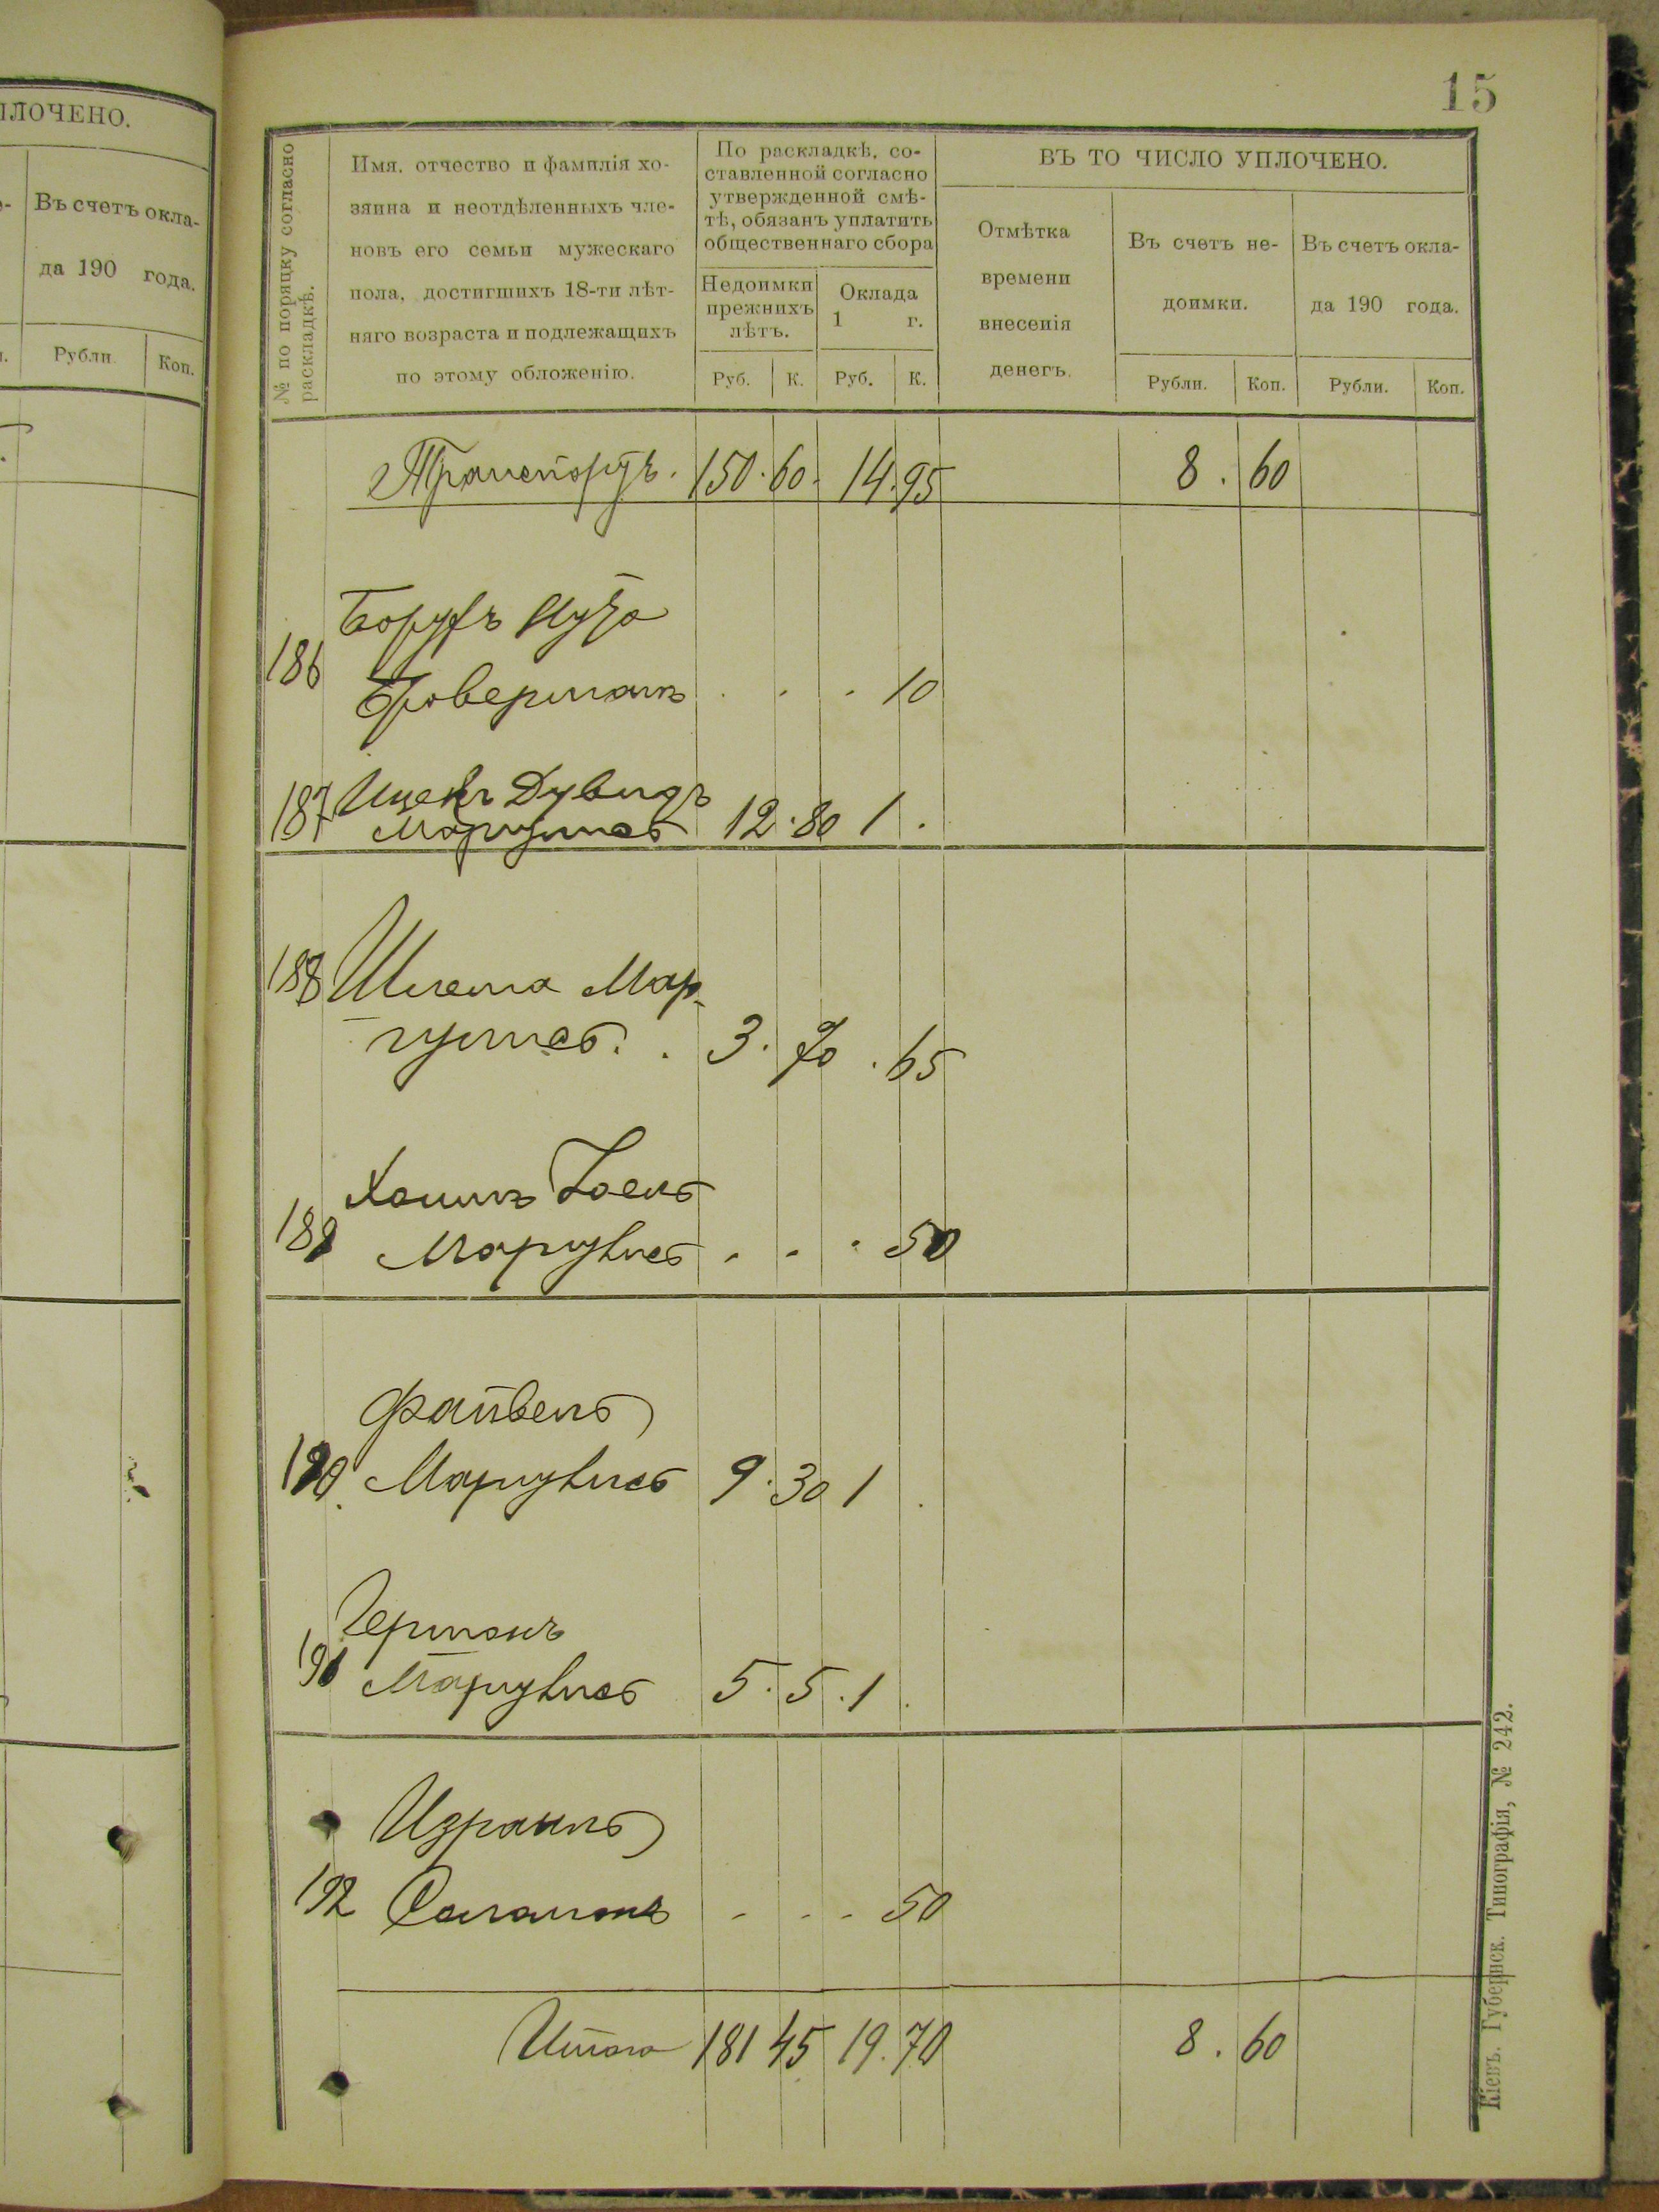 ПЛОЧЕНО.
Въ счетъ окла-
да 190 года.
Рубли. Коп.
15
№ по порядку согласно
раскладкѣ.
Имя, отчество и фамилія хо-
зяина и неотдѣленныхъ чле-
новъ его семьи мужескаго
пола, достигшихъ 18-ти лѣт-
няго возраста и подлежащихъ
по этому обложенію.
По раскладкѣ, со-
ставленной согласно
утвержденной смѣ-
тѣ, обязанъ уплатить
общественнаго сбора
Недоимки
прежнихъ
лѣтъ.
Руб. К.
Оклада
1 г.
Руб. К.
ВЪ ТО ЧИСЛО УПЛОЧЕНО.
Отмѣтка
времени
внесенія
денегъ.
Въ счетъ не-
доимки.
Рубли. Коп.
Въ счетъ окла-
да 190 года.
Рубли. Коп.
Транспортъ. 150. 60. 14. 95 8. 60
Борухъ
186
Броверманъ . . . 10
187 Ицекъ Дувидъ
Маргулисъ 12. 80 1 .
188 Шлема Мар-
гулисъ. . 3. 70 . 65
Хаимъ Іоель
189 Маргулисъ . . . 50
Файвель
190. Маргулисъ 9. 30 1 .
Германъ
191 Маргулисъ 5. 5. 1 .
Израиль
192 Саламонъ . . . 50
Итого 181 45 19. 70 8. 60
Кіевъ. Губернск. Типографія, № 242.